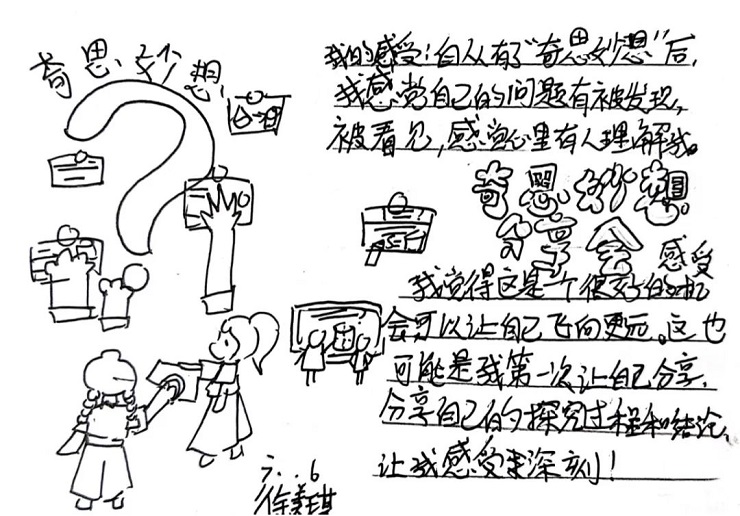 奇思妙想
我的感受：自从有了“奇思妙想”后，
我感觉自己的问题有被发现，
被看见，感觉心里有人理解我。
奇思妙想
分享会
感受
我觉得这是个很好的机
会可以让自己飞向更远。这也
可能是我第一次让自己分享，
分享自己的探究过程和结论，
让我感受更深刻！
六.6
徐美琪